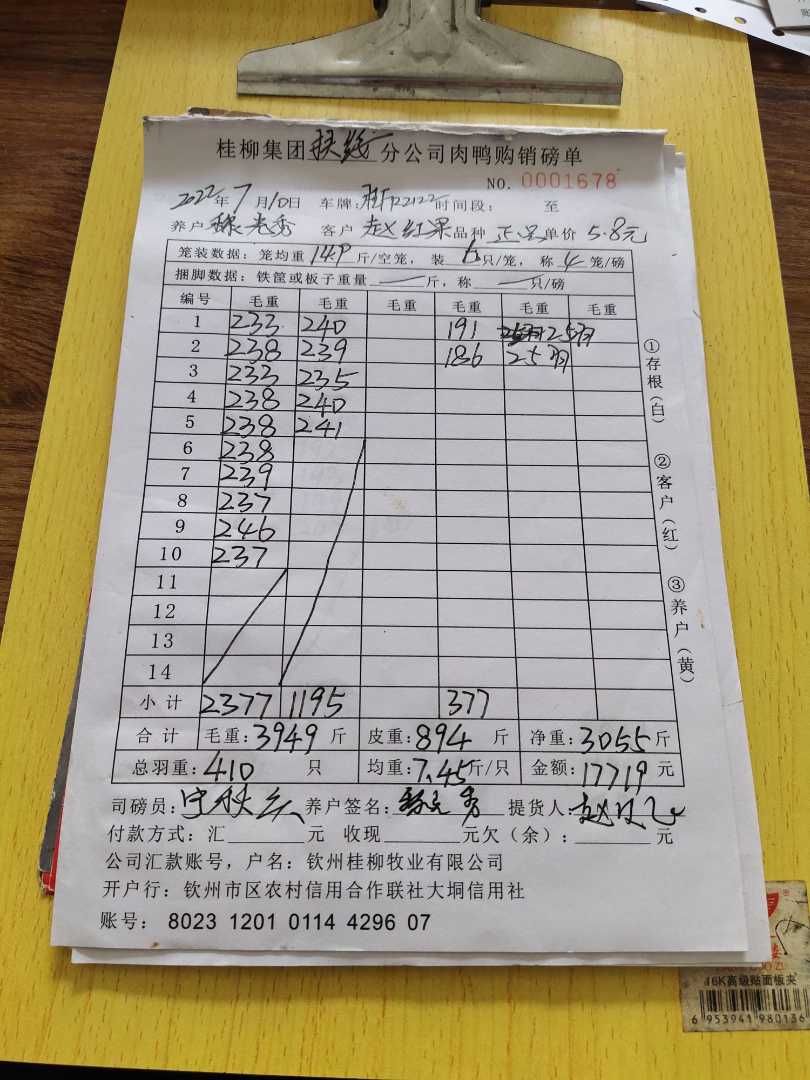 桂柳集团 分公司肉鸭购销磅单
NO. 0001678
2022年7月10日 车牌: 时间段: 至
养户 客户 赵红果 品种 正品 单价 5.8元
笼装数据:笼均重14.9斤/空笼,装 6只/笼,称4笼/磅
捆脚数据:铁筐或板子重量 — 斤,称 — 只/磅
编号 毛重 毛重 毛重 毛重 毛重 毛重
1 233 240 191 25羽
2 238 239 186 25羽
3 233 235
4 238 240
5 238 241
6 238
7 239
8 237
9 246
10 237
11
12
13
14
小计 2377 1195 377
合计 毛重:3949斤 皮重:894斤 净重:3055斤
总羽重:410只 均重:7.45斤/只 金额:17719元
司磅员: 养户签名: 提货人:
付款方式:汇 元 收现 元欠(余): 元
公司汇款账号,户名:钦州桂柳牧业有限公司
开户行:钦州市区农村信用合作联社大垌信用社
账号: 8023 1201 0114 4296 07
①存根(白)
②客户(红)
③养户(黄)
16K高级贴面板夹
6 953941 980136